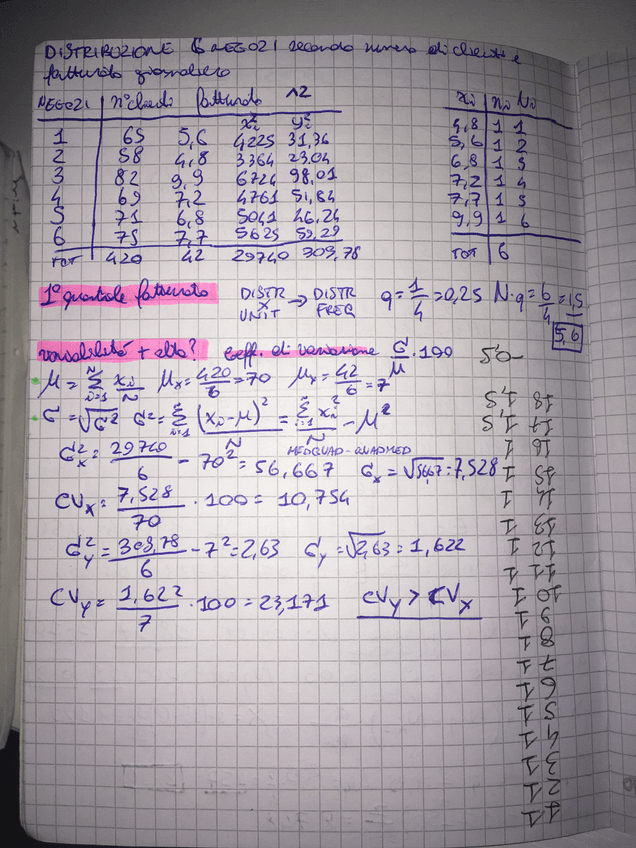 DISTRIBUZIONE 6 NEGOZI secondo numero di clienti e
fatturato giornaliero
NEGOZI n° clienti fatturato ^2
x²ᵢ y²ᵢ
1 65 5,6 4225 31,36
2 58 4,8 3364 23,04
3 82 9,9 6724 98,01
4 69 7,2 4761 51,84
5 71 6,8 5041 46,24
6 75 7,7 5625 59,29
TOT 420 42 29740 309,78
xᵢ nᵢ Nᵢ
4,8 1 1
5,6 1 2
6,8 1 3
7,2 1 4
7,7 1 5
9,9 1 6
TOT 6
1° quartile fatturato DISTR UNIT → DISTR FREQ q = 1/4 = 0,25 N·q = 6/4 = 1,5
5,6
variabilità + alta? Coeff. di variazione σ/μ · 100
μ = Σᵢ₌₁ᴺ xᵢ/N μₓ = 420/6 = 70 μₓ = 42/6 = 7
σ = √σ² σ² = Σᵢ₌₁ᴺ (xᵢ-μ)²/N = Σᵢ₌₁ᴺ xᵢ²/N - μ²
MEDQUAD-QUADMED
σ²ₓ = 29740/6 - 70² = 56,667 σₓ = √56,67 = 7,528
CVₓ = 7,528/70 · 100 = 10,754
σ²ᵧ = 309,78/6 - 7² = 2,63 σᵧ = √2,63 = 1,622
CVᵧ = 1,622/7 · 100 = 23,171 CVᵧ > CVₓ
50-
1 1
2 1
3 1
4 1
5 1
6 1
7 1
8 1
9 1
10 1
11 1
12 1
13 1
14 1
15 1
16 1
17 1,5
18 1,5